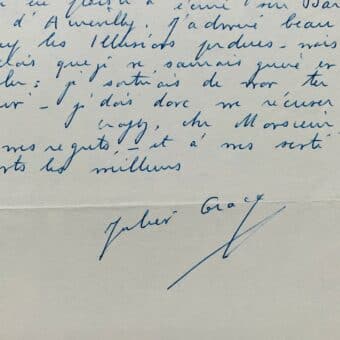 plaisir à écrire sur Bar
d'Aurevilly. J'admire beau
les Illusions perdues – mais
que je ne saurais guère en
: je sortirais de mon ter
– je dois donc me récuser
croyez, cher Monsieur
mes regrets – et à mes senti
les meilleurs
Julien Gracq